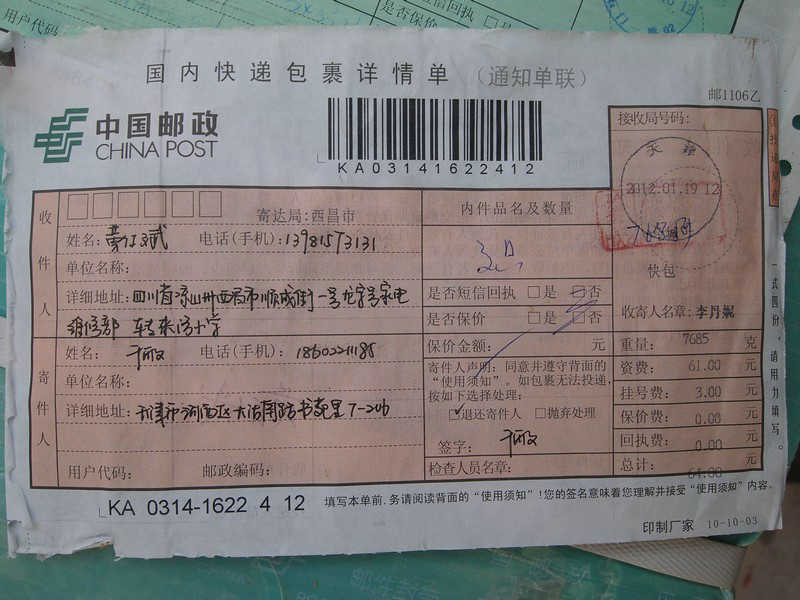 用户代码:
短信回执 □是
是否保价
国内快递包裹详情单 (通知单联)
邮1106乙
中国邮政
CHINA POST
KA03141622412
接收局号码:
2012.01.19 12
快包
收寄人名章: 李丹妮
收件人
寄达局:西昌市
姓名: 电话(手机):13981573131
单位名称:
详细地址: 四川省凉山州西昌市顺城街一号
寄件人
姓名: 电话(手机): 18602211185
单位名称:
详细地址: 天津市河西区大沽南路 7-206
用户代码: 邮政编码:
内件品名及数量
是否短信回执 □是 □否
是否保价 □是 □否
保价金额: 元
寄件人声明: 同意并遵守背面的
“使用须知”。如包裹无法投递,
按如下选择处理:
□退还寄件人 □抛弃处理
签字:
检查人员名章:
重量: 7685 克
资费: 61.00 元
挂号费: 3.00 元
保价费: 0.00 元
回执费: 0.00 元
总计: 64.00 元
一式四份,请用力填写。
KA 0314-1622 4 12
填写本单前,务请阅读背面的“使用须知”!您的签名意味着您理解并接受“使用须知”内容。
印制厂家 10-10-03